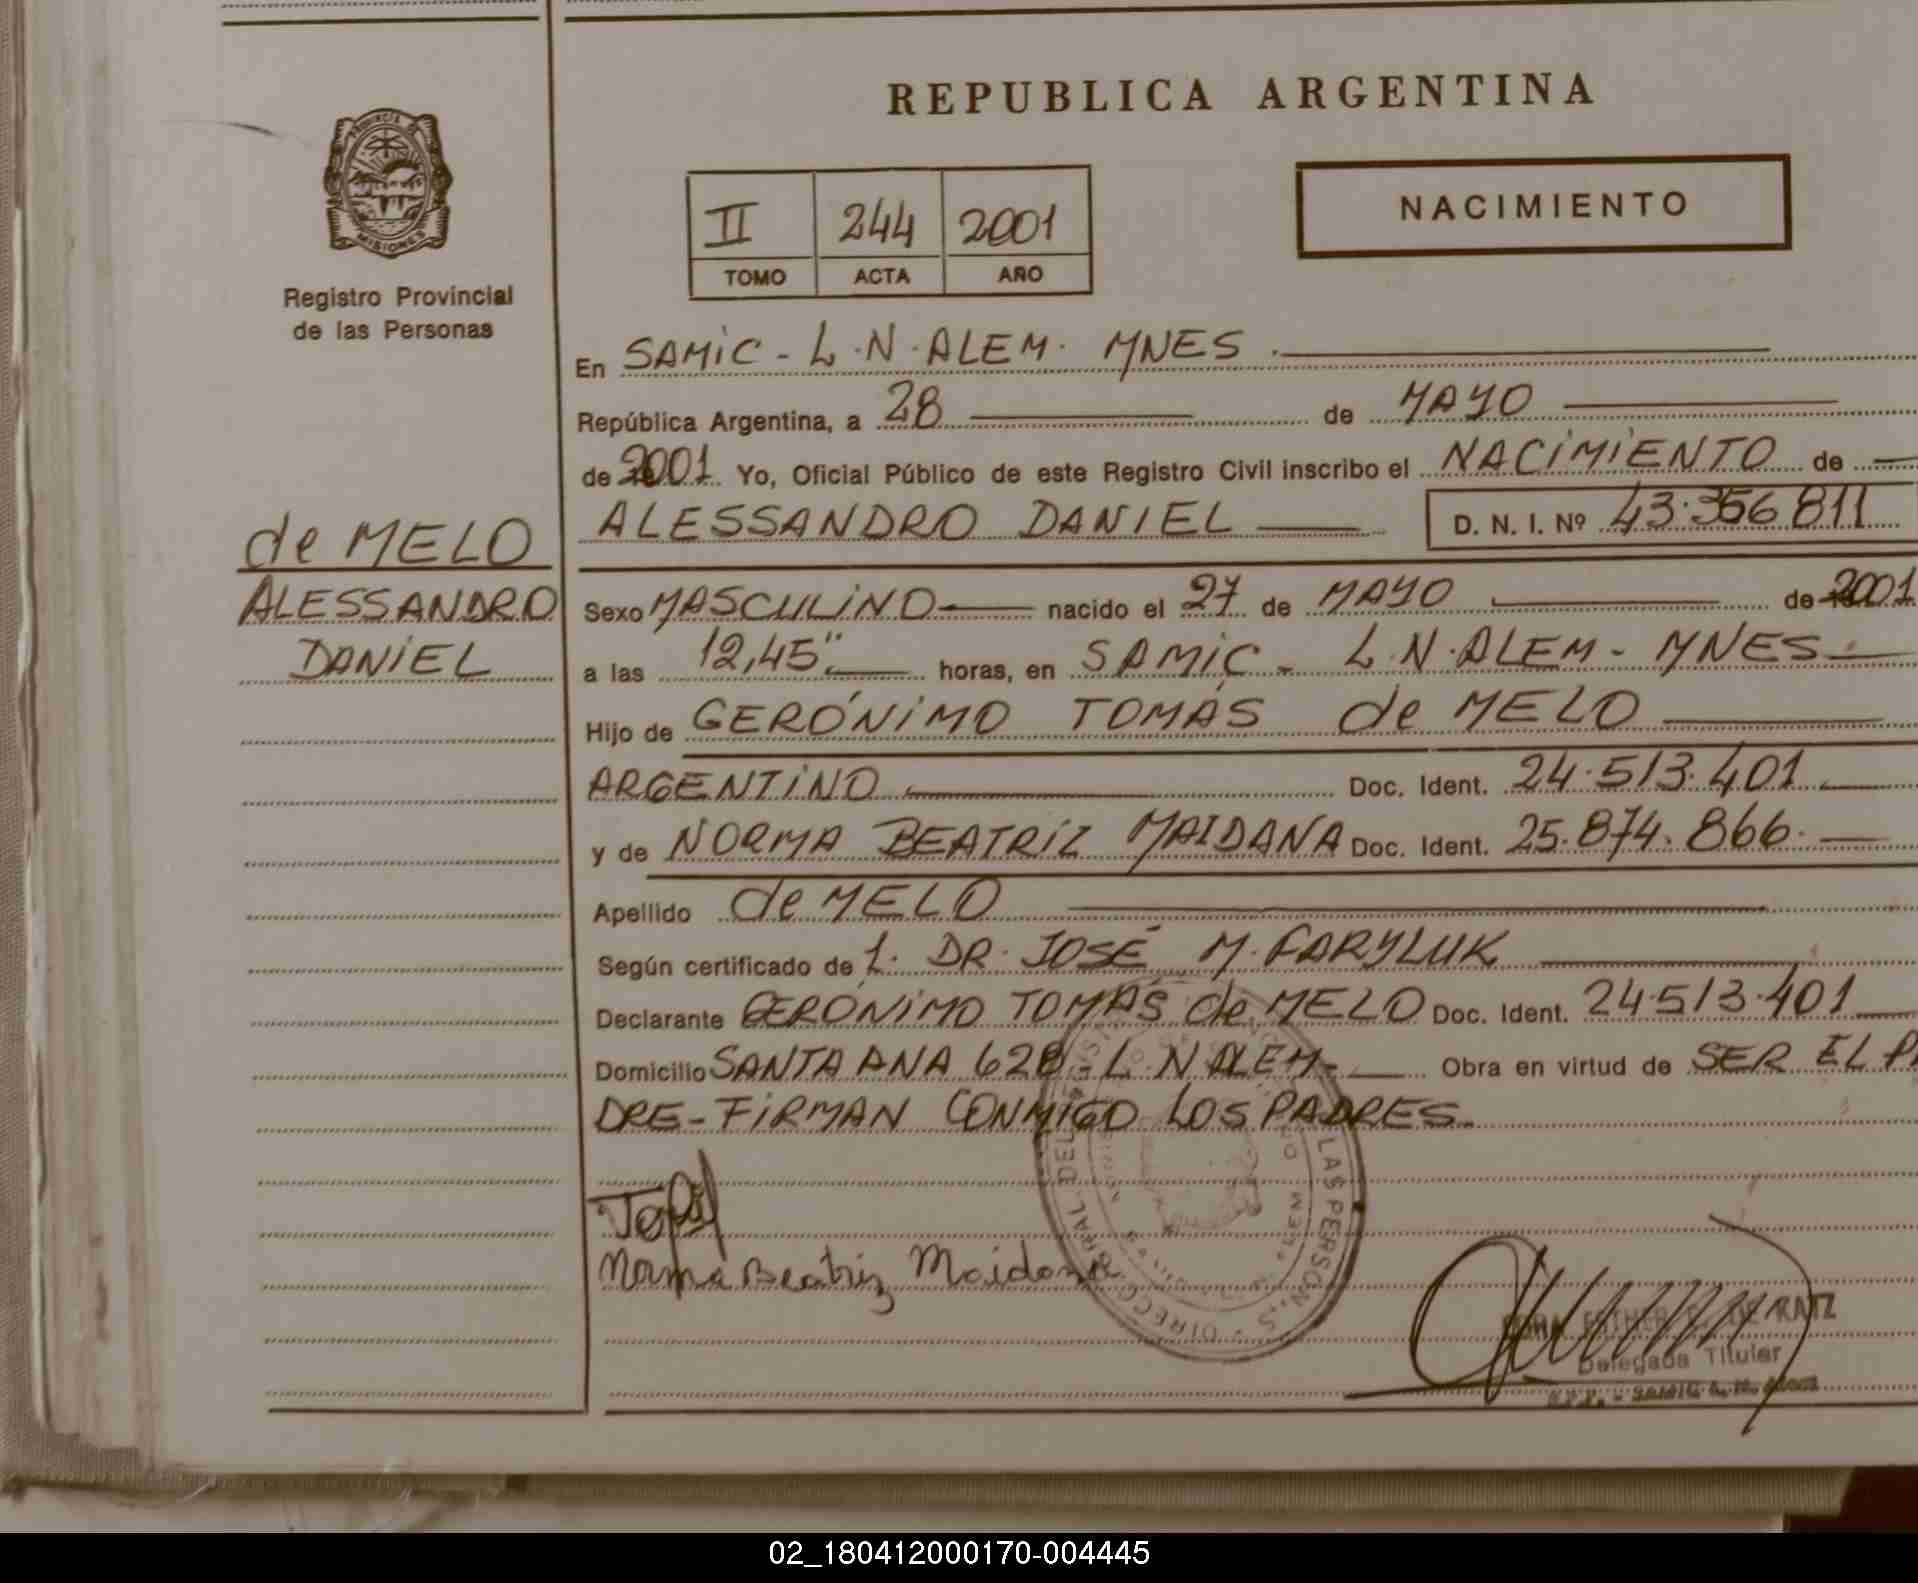 REPUBLICA ARGENTINA
PROVINCIA DE
MISIONES
Registro Provincial
de las Personas
II 244 2001
TOMO ACTA AÑO
NACIMIENTO
En SAMIC - L.N. ALEM. MNES.
República Argentina, a 28 de MAYO
de 2001 Yo, Oficial Público de este Registro Civil inscribo el NACIMIENTO de
ALESSANDRO DANIEL D. N. I. Nº 43.356811
de MELO
ALESSANDRO
DANIEL
Sexo MASCULINO nacido el 27 de MAYO de 2001
a las 12,45" horas, en SAMIC - L.N. ALEM - MNES
Hijo de GERÓNIMO TOMÁS de MELO
ARGENTINO Doc. Ident. 24.513.401
y de NORMA BEATRIZ MAIDANA Doc. Ident. 25.874.866.
Apellido de MELO
Según certificado de 1. DR. JOSÉ M. FARYLUK
Declarante GERÓNIMO TOMÁS de MELO Doc. Ident. 24.513.401
Domicilio SANTA ANA 628 - L N ALEM - Obra en virtud de SER EL PA
DRE - FIRMAN CONMIGO LOS PADRES.
Norma Beatriz Maidana
DE KATZ
Delegada Titular
02_180412000170-004445